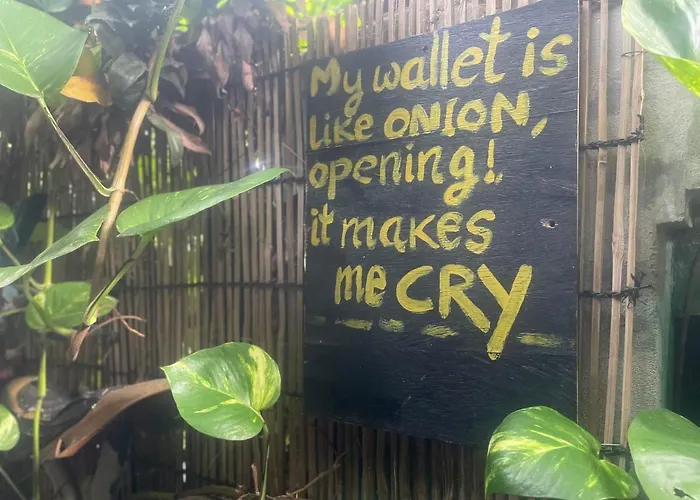 My wallet is
like ONION,
opening!
it makes
me CRY